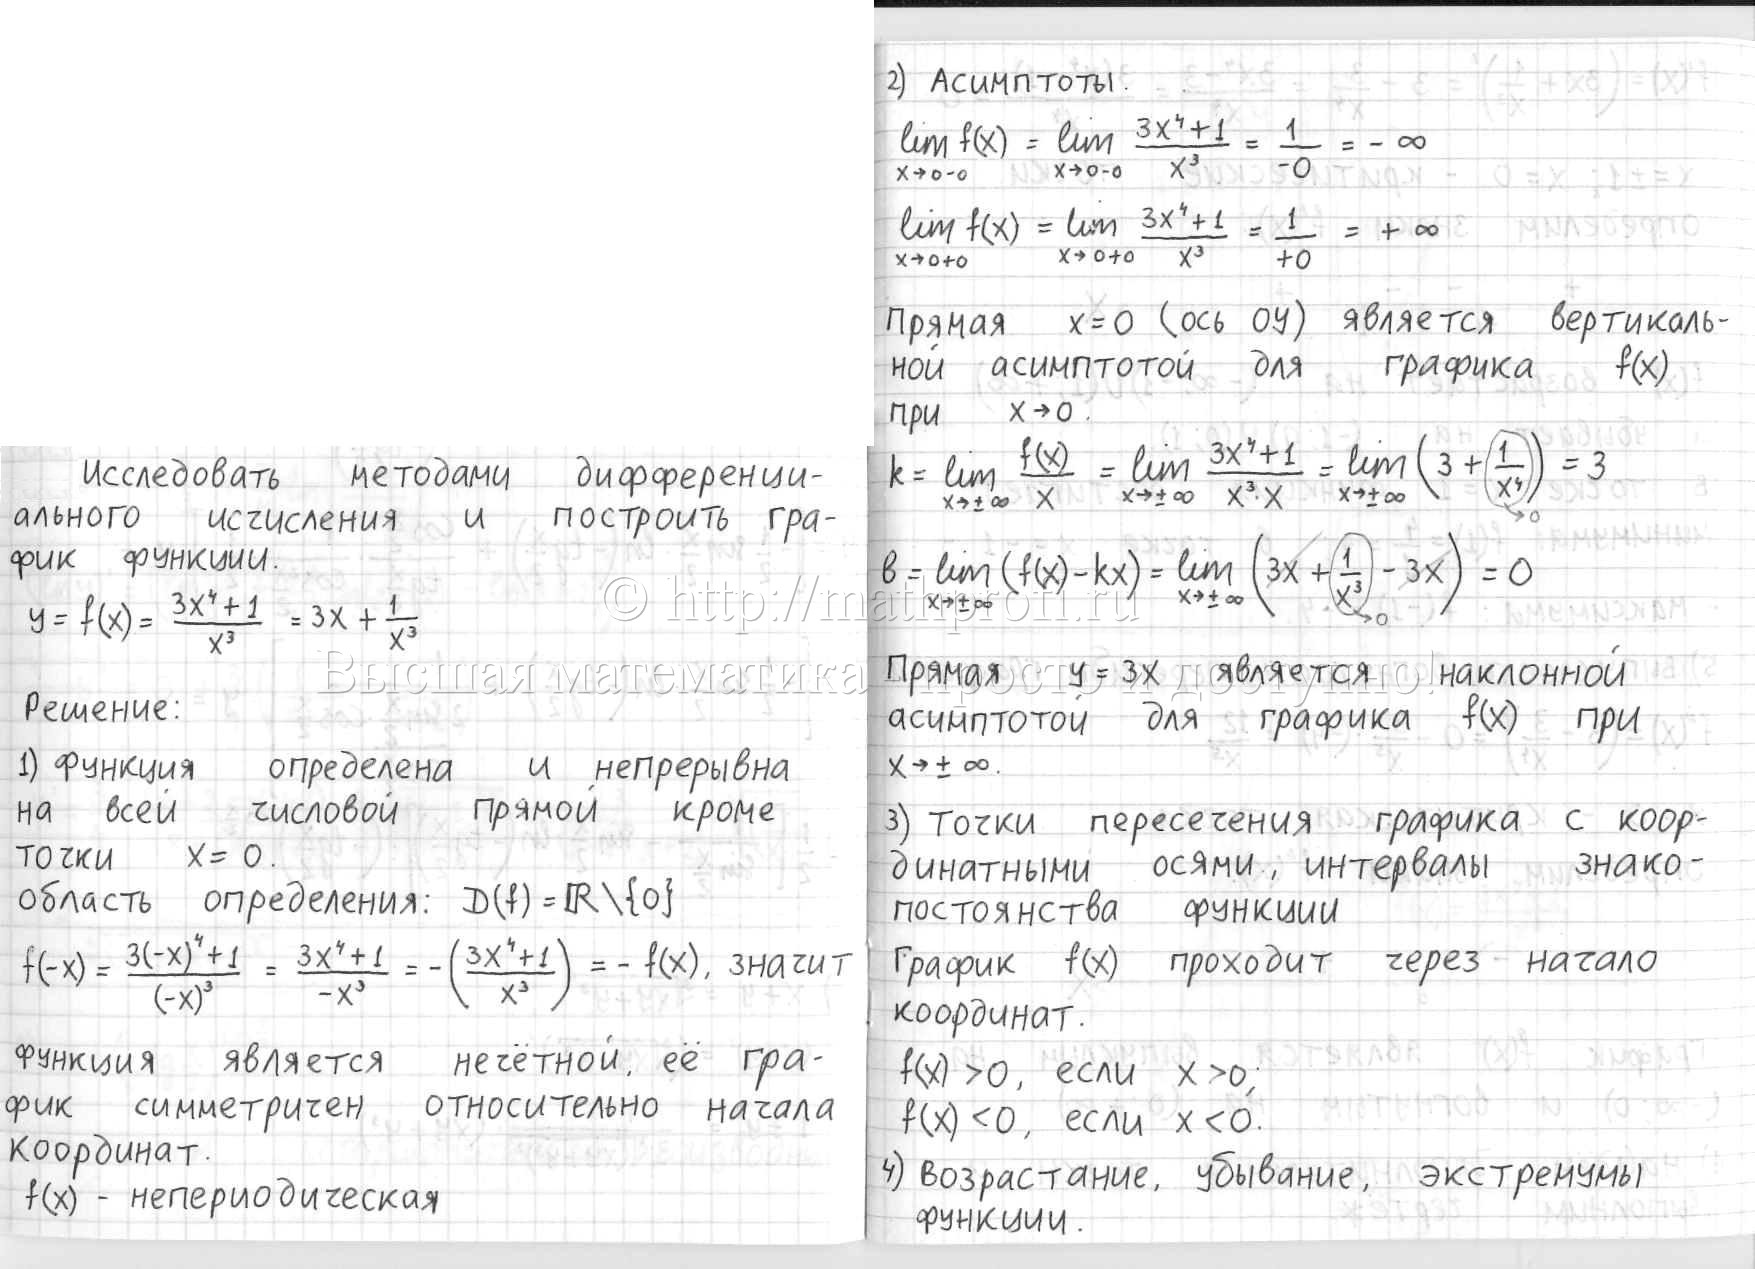 Исследовать методами дифференци-
ального исчисления и построить гра-
фик функции.
y = f(x) = (3x⁴+1)/x³ = 3x + 1/x³
Решение:
1) Функция определена и непрерывна
на всей числовой прямой кроме
точки x = 0.
область определения: D(f) = ℝ\{0}
f(-x) = (3(-x)⁴+1)/(-x)³ = (3x⁴+1)/(-x³) = -((3x⁴+1)/x³) = - f(x), значит
функция является нечётной, её гра-
фик симметричен относительно начала
координат.
f(x) - непериодическая
2) Асимптоты.
lim x→0-0 f(x) = lim x→0-0 (3x⁴+1)/x³ = 1/-0 = - ∞
lim x→0+0 f(x) = lim x→0+0 (3x⁴+1)/x³ = 1/+0 = + ∞
Прямая x=0 (ось OY) является вертикаль-
ной асимптотой для графика f(x)
при x→0.
k = lim x→±∞ f(x)/x = lim x→±∞ (3x⁴+1)/(x³·x) = lim x→±∞ (3 + 1/x⁴) = 3
→0
b = lim x→±∞ (f(x)-kx) = lim x→±∞ (3x + 1/x³ - 3x) = 0
→0
Прямая y = 3x является наклонной
асимптотой для графика f(x) при
x→±∞.
3) Точки пересечения графика с коор-
динатными осями, интервалы знако-
постоянства функции
График f(x) проходит через начало
координат.
f(x) >0, если x >0;
f(x) <0, если x <0.
4) Возрастание, убывание, экстремумы
функции.
© http://mathprofi.ru
Высшая математика – просто и доступно!